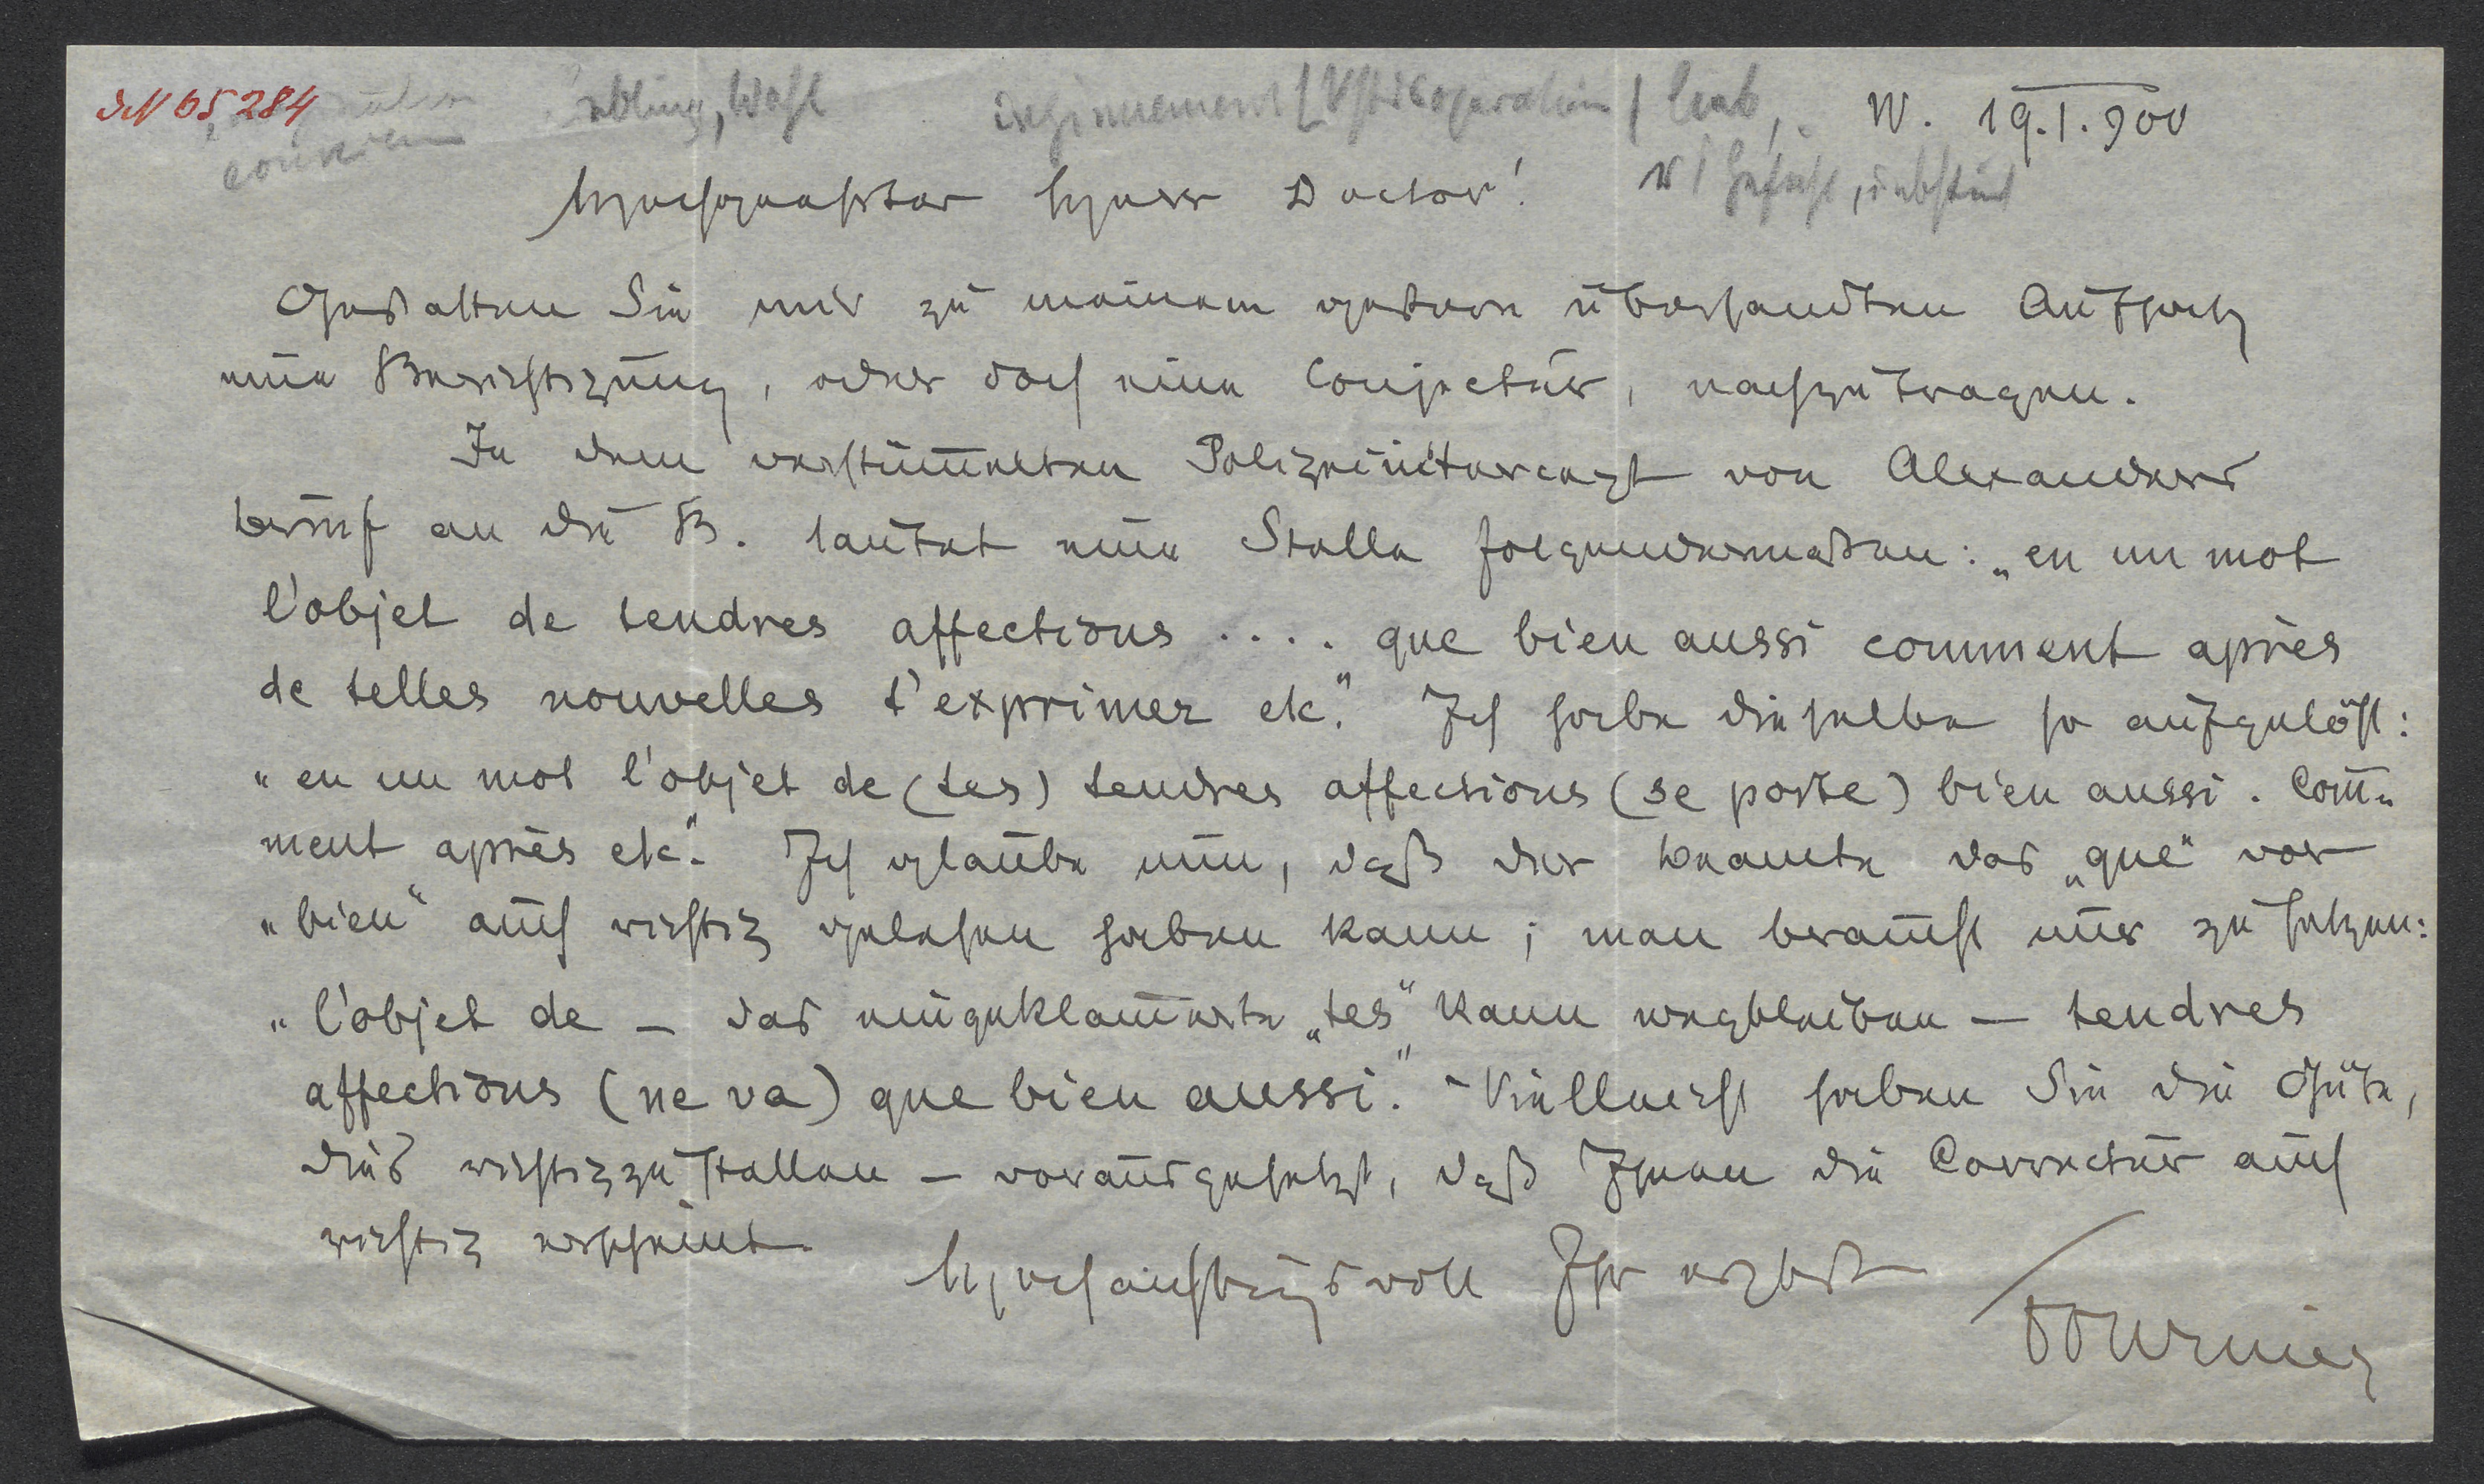 JN 65284
W. 19.I.900
Hochgeehrter Herr Doctor!
Gestatten Sie mir zu meinem gestern übersandten Aufsatz
eine Berichtigung, oder doch eine Conjectur, nachzutragen.
In dem verstümelten Polizeiintercept von Alexanders
brief an die B. lautet eine Stelle folgendermaßen: „en un mot
l'objet de tendres affections .... que bien aussi comment après
de telles nouvelles t'exprimer etc." Ich habe dieselbe so aufgelöst:
„en un mot l'objet de (tes) tendres affections (se porte) bien aussi. Com̄-
ment après etc." Ich glaube nun, daß der beamte das „que" vor
„bien" auch richtig gelesen haben kann; man braucht nur zu setzen:
„l'objet de — das eingeklam̄erte „tes" kann wegbleiben — tendres
affections (ne va) que bien aussi." Vielleicht haben Sie die Güte,
dies richtigzustellen — vorausgesetzt, daß Ihnen die Correctur auch
richtig erscheint.
Hochachtungsvoll Ihr ergbst
Fournier